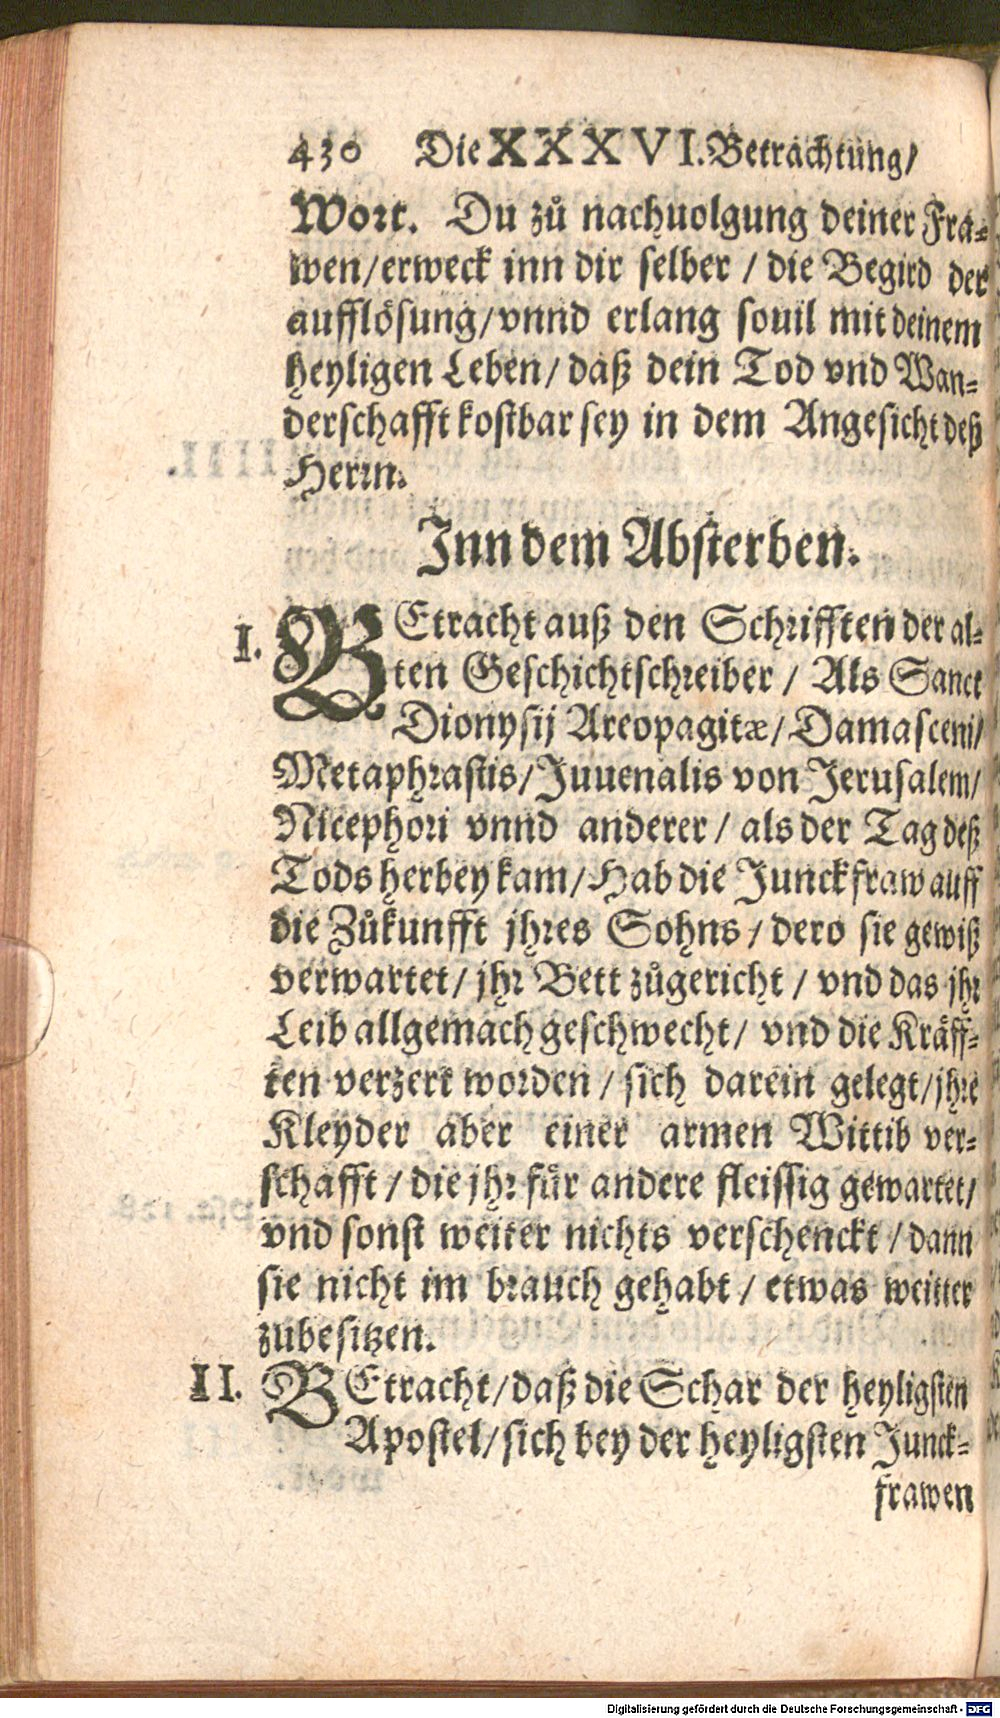 430 Die XXXVI. Betrachtung/
Wort. Du zů nachuolgung deiner Fra-
wen/erweck inn dir selber / die Begird der
aufflösung/vnnd erlang souil mit deinem
heyligen Leben/ daß dein Tod vnd Wan-
derschafft kostbar sey in dem Angesicht deß
Herrn.
Inn dem Absterben.
I. BEtracht auß den Schrifften der al-
ten Geschichtschreiber / Als Sanct
Dionysij Areopagitæ/ Damasceni/
Metaphrastis/Juuenalis von Jerusalem/
Nicephori vnnd anderer / als der Tag deß
Tods herbey kam/Hab die Junckfraw auff
die Zůkunfft jhres Sohns / dero sie gewiß
verwartet/ jhr Bett zůgericht / vnd das jhr
Leib allgemach geschwecht/ vnd die Kräff-
ten verzert worden / sich darein gelegt/jhre
Kleyder aber einer armen Wittib ver-
schafft / die jhr für andere fleissig gewartet/
vnd sonst weiter nichts verschenckt / dann
sie nicht im brauch gehabt / etwas weitter
zubesitzen.
II. BEtracht/daß die Schar der heyligsten
Apostel/sich bey der heyligsten Junck-
frawen
Digitalisierung gefördert durch die Deutsche Forschungsgemeinschaft - DFG